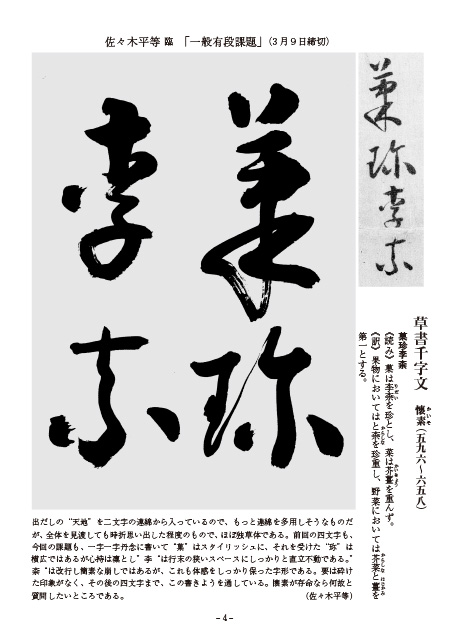 佐々木平等 臨 「一般有段課題」(3月9日締切)
菓珍
李柰
菓珍李柰
草書千字文 懐素(五九六~六五八)
かいそ
菓珍李柰
《読み》菓は李柰を珍とし、菜は芥薑を重んず。
《訳》果物においてはと柰を珍重し、野菜においては芥菜と薑を
第一とする。
出だしの“天地”を二文字の連綿から入っているので、もっと連綿を多用しそうなものだ
が、全体を見渡しても時折思い出した程度のもので、ほぼ独草体である。前回の四文字も、
今回の課題も、一字一字丹念に書いて“菓”はスタイリッシュに、それを受けた“珎”は
横広ではあるが心持は凛とし”李“は行末の狭いスペースにしっかりと直立不動である。”
柰“は改行し簡素な崩しではあるが、これも体感をしっかり保った字形である。要は砕け
た印象がなく、その後の四文字まで、この書きようを通している。懐素が存命なら何故と
質問したいところである。 (佐々木平等)
- 4 -